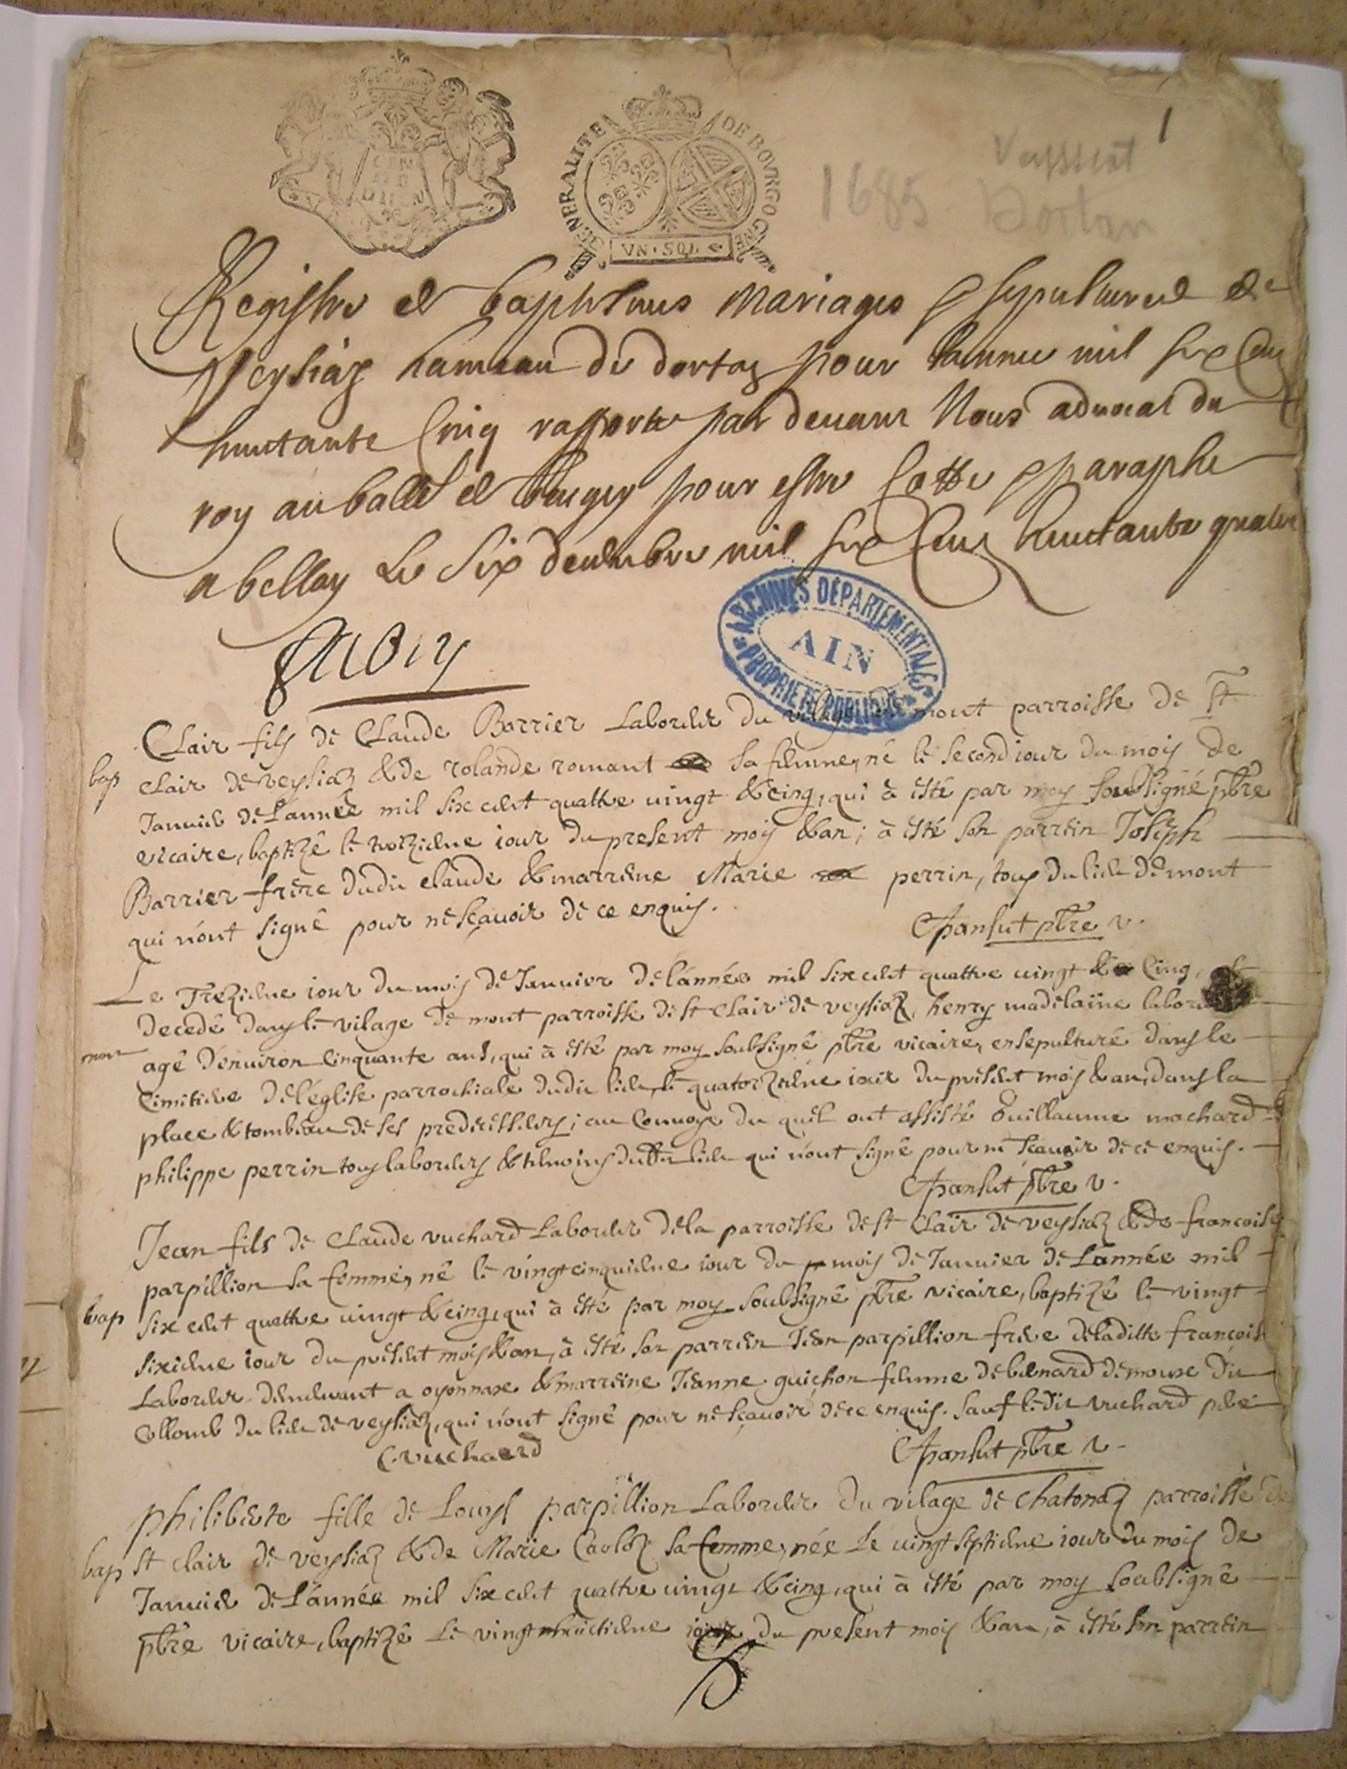 1
GENERALITE DE BOVRGOGNE
VN · SOL
1685
Dortan
Registre de baptesmes mariages sepultures de
Veysiaz hameau de dortaz pour lannee mil six Cens
huictante Cinq rapporte par devant Nous advocat du
roy au balli de beugey pour estre Cotte paraphe
a belley Le Six decembre mil six Cens huictante quatre
ARCHIVES DÉPARTEMENTALES
AIN
PROPRIÉTÉ PUBLIQUE
Clair fils de Claude Barrier Laboureur du mont parroisse de St
bap
clair de veysiaz & de rolande romant sa femme, né le second iour du mois de
Janvier de l'année mil six cent quattre vingt & cinq, qui à esté par moy soubsigné pbre
vicaire, baptizé le troizieme iour du present mois & an; à esté son parrein Joseph
Barrier frere dudit claude & marreine Marie perrin, tous du lieu de mont
qui n'ont signé pour ne sçavoir de ce enquis.
Pansut pbre v.
Le Trezieme iour du mois de Janvier de l'année mil six cent quattre vingt & Cinq,
decedé dans le vilage de mont parroisse de st clair de veysiaz, henry madelaine
mort
agé d'environ cinquante ans, qui à esté par moy soubsigné pbre vicaire, ensepulturé dans le
cimitiere de l'église parrochiale dudit lieu, le quatorzieme iour du present mois & an, dans la
place & tombeau de ses predecesseurs; au Convoye du quel ont assisté Guillaume mochard &
philippe perrin tous laboureurs & temoins dudit lieu qui n'ont signé pour ne sçavoir de ce enquis.
Pansut pbre v.
Jean fils de Claude vuchard Laboureur de la parroisse de st Clair de veysiaz & de francoise
parpillion sa femme, né le vingt cinquieme iour du mois de Janvier de L'année mil
bap
six cent quattre vingt & cinq, qui à esté par moy soubsigné pbre vicaire, baptizé le vingt
sixieme iour du present mois & an, à esté son parrein Jean parpillion frere de la ditte françoise
Laboureur demeurant a oyonnax & marreine Jeanne guichon femme de bernard de moure du
Collomb du lieu de veysiaz, qui n'ont signé pour ne sçavoir de ce enquis. sauf ledit vuchard pere
C. vuchard
Pansut pbre v.
philiberte fille de Louys parpillion Laboureur du vilage de chatonaz parroisse de
bap
st clair de veysiaz & de Marie Carloz sa femme, née Le vingt septieme iour du mois de
Janvier de L'année mil six cent quattre vingt & cinq, qui à esté par moy soubsigné
pbre vicaire, baptizé Le vingt huictieme iour du present mois & an, à esté son parrein